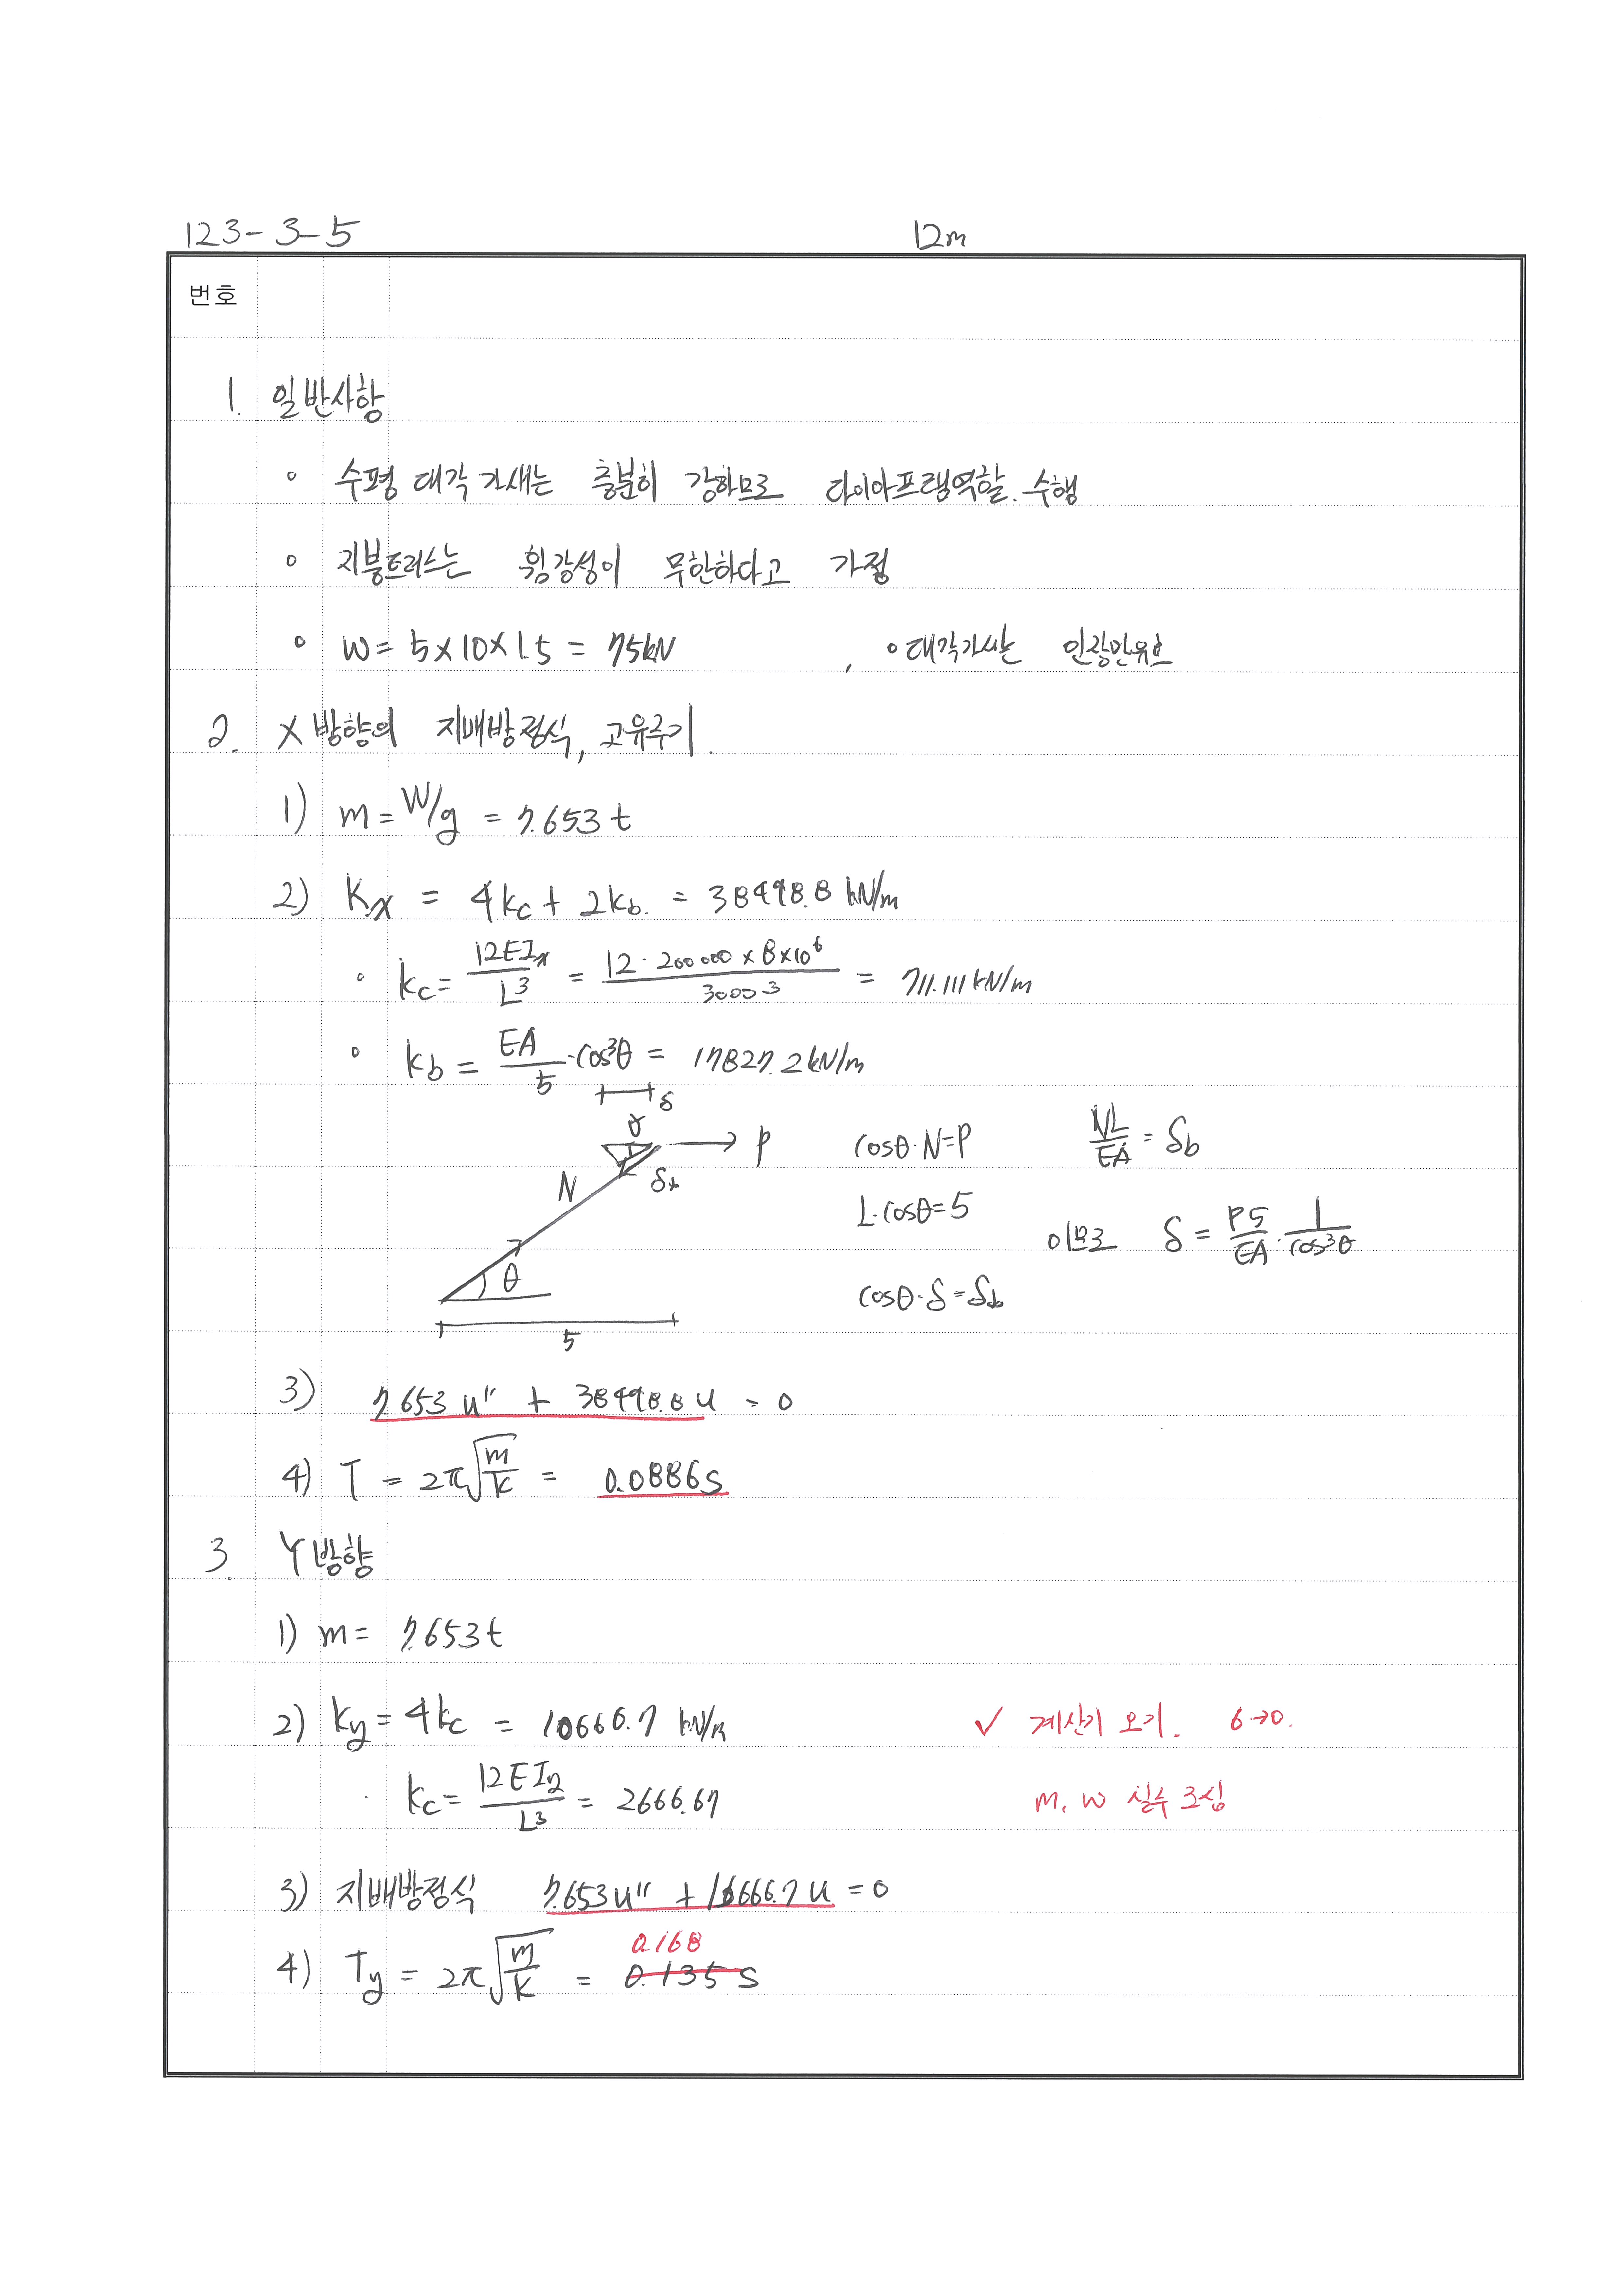 123-3-5 12m
번호
1. 일반사항
○ 수평 대각가새는 충분히 강하므로 다이아프램역할 수행
○ 지붕트러스는 휨강성이 무한하다고 가정
○ W = 5×10×1.5 = 75kN , ○ 대각가새는 인장만유효
2. X방향의 지배방정식, 고유주기.
1) m = W/g = 7.653 t
2) Kx = 4kc + 2kb. = 38498.8 kN/m
○ kc = 12EIx/L³ = 12·200000×8×10⁶/3000³ = 711.111 kN/m
○ kb = EA/5·cos³θ = 17827.2 kN/m
δ
θ P cosθ·N=P NL/EA = δb
N δb L·cosθ=5
이므로 δ = P5/EA · 1/cos³θ
θ cosθ·δ=δb
5
3) 7.653 u'' + 38498.8 u = 0
4) T = 2π√(m/k) = 0.0886s
3. Y방향
1) m = 7.653t
2) ky = 4kc = 10666.7 kN/m ✓ 계산기 오기. 6→0.
· kc = 12EIy/L³ = 2666.67 m, w 실수 조심
3) 지배방정식 7.653u'' + 10666.7 u = 0
0.168
4) Ty = 2π√(m/k) = 0.135 s